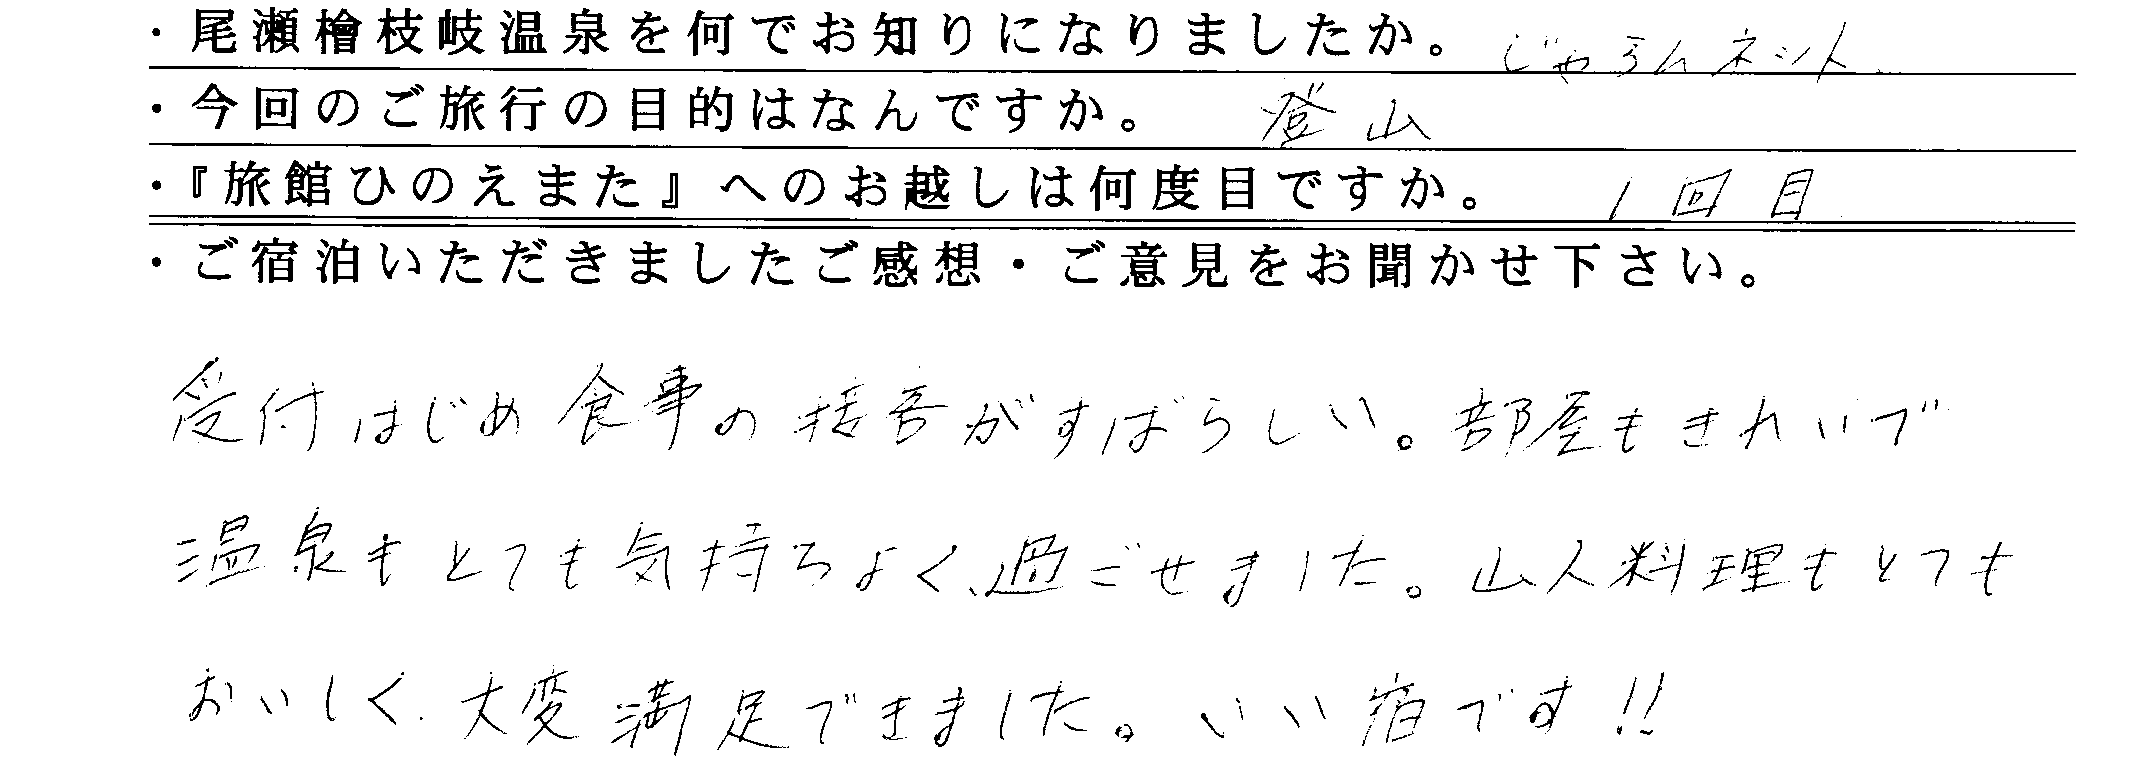 ・尾瀬檜枝岐温泉を何でお知りになりましたか。 じゃらんネット
・今回のご旅行の目的はなんですか。 登山
・『旅館ひのえまた』へのお越しは何度目ですか。 1回目
・ご宿泊いただきましたご感想・ご意見をお聞かせ下さい。
受付はじめ食事の接客がすばらしい。部屋もきれいで
温泉もとても気持ちよく、過ごせました。山人料理もとても
おいしく、大変満足できました。いい宿です!!